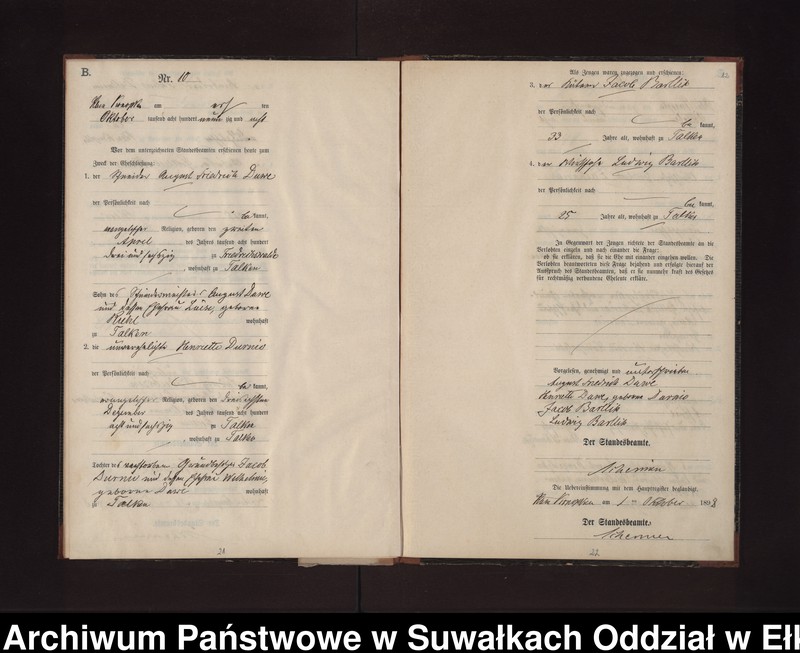 B.
Nr. 10
am erst ten
Oktober tausend acht hundert neun zig und acht
Vor dem unterzeichneten Standesbeamten erschienen heute zum
Zweck der Eheschließung:
1. der Schneider August Friedrich Dawe
der Persönlichkeit nach
be kannt,
evangelischer Religion, geboren den zweiten
April des Jahres tausend acht hundert
drei und sechszig zu Friedrichswalde
, wohnhaft zu Talken
Sohn des August Dawe
und dessen Ehefrau Luise, geborene
wohnhaft
zu Talken
2. die unverehelichte Henriette Durnio
der Persönlichkeit nach
be kannt,
evangelischer Religion, geboren den
Dezember des Jahres tausend acht hundert
acht und sechszig zu Talken
, wohnhaft zu Talken
Tochter des verstorbenen Grundbesitzers Jacob
Durnio und dessen Ehefrau Wilhelmine,
geborene Dawe wohnhaft
zu Talken
21
Als Zeugen waren zugezogen und erschienen:
3. der Jacob Bartlik
der Persönlichkeit nach
be kannt,
33 Jahre alt, wohnhaft zu Talken
4. der Ludwig Bartlik
der Persönlichkeit nach
be kannt,
25 Jahre alt, wohnhaft zu Talken
In Gegenwart der Zeugen richtete der Standesbeamte an die
Verlobten einzeln und nach einander die Frage:
ob sie erklären, daß sie die Ehe mit einander eingehen wollen. Die
Verlobten beantworteten diese Frage bejahend und erfolgte hierauf der
Ausspruch des Standesbeamten, daß er sie nunmehr kraft des Gesetzes
für rechtmäßig verbundene Eheleute erkläre.
Vorgelesen, genehmigt und unterschrieben
August Friedrich Dawe
Henriette Dawe, geborene Durnio
Jacob Bartlik
Ludwig Bartlik
Der Standesbeamte.
Die Uebereinstimmung mit dem Hauptregister beglaubigt.
am 1 ten Oktober 1898
Der Standesbeamte.
22
Archiwum Państwowe w Suwałkach Oddział w Ełk